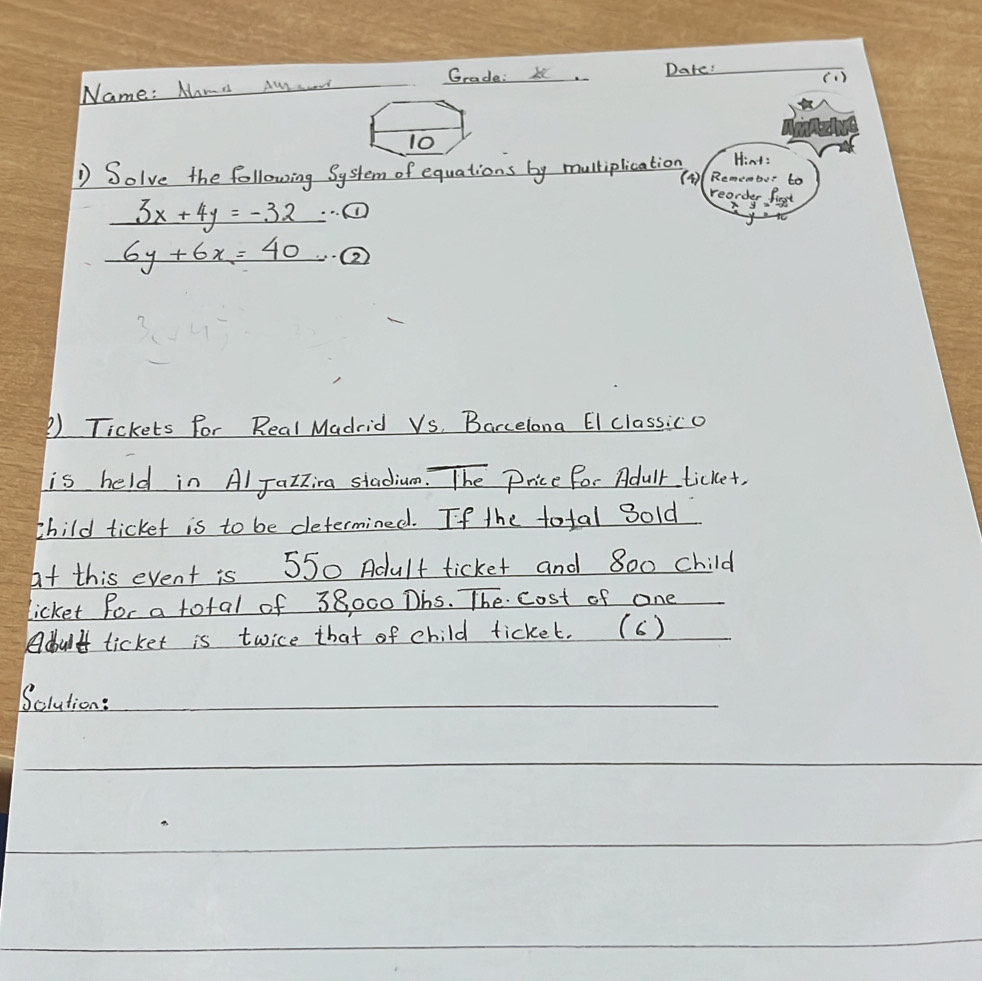 Name:
Grade:
Date:
(1)
10
AMAZING
1) Solve the following System of equations by multiplication (4)
Hint:
Remember to
reorder first
x y =
x y = #
3x + 4y = -32 ... ①
6y + 6x = 40 ... ②
3x + 4y
2) Tickets for Real Madrid Vs. Barcelona El classico
is held in Al Jazzira stadium. The Price for Adult ticket,
child ticket is to be determined. If the total Sold
at this event is 550 Adult ticket and 800 child
ticket for a total of 38,000 Dhs. The cost of one
Adult ticket is twice that of child ticket. (6)
Solution: